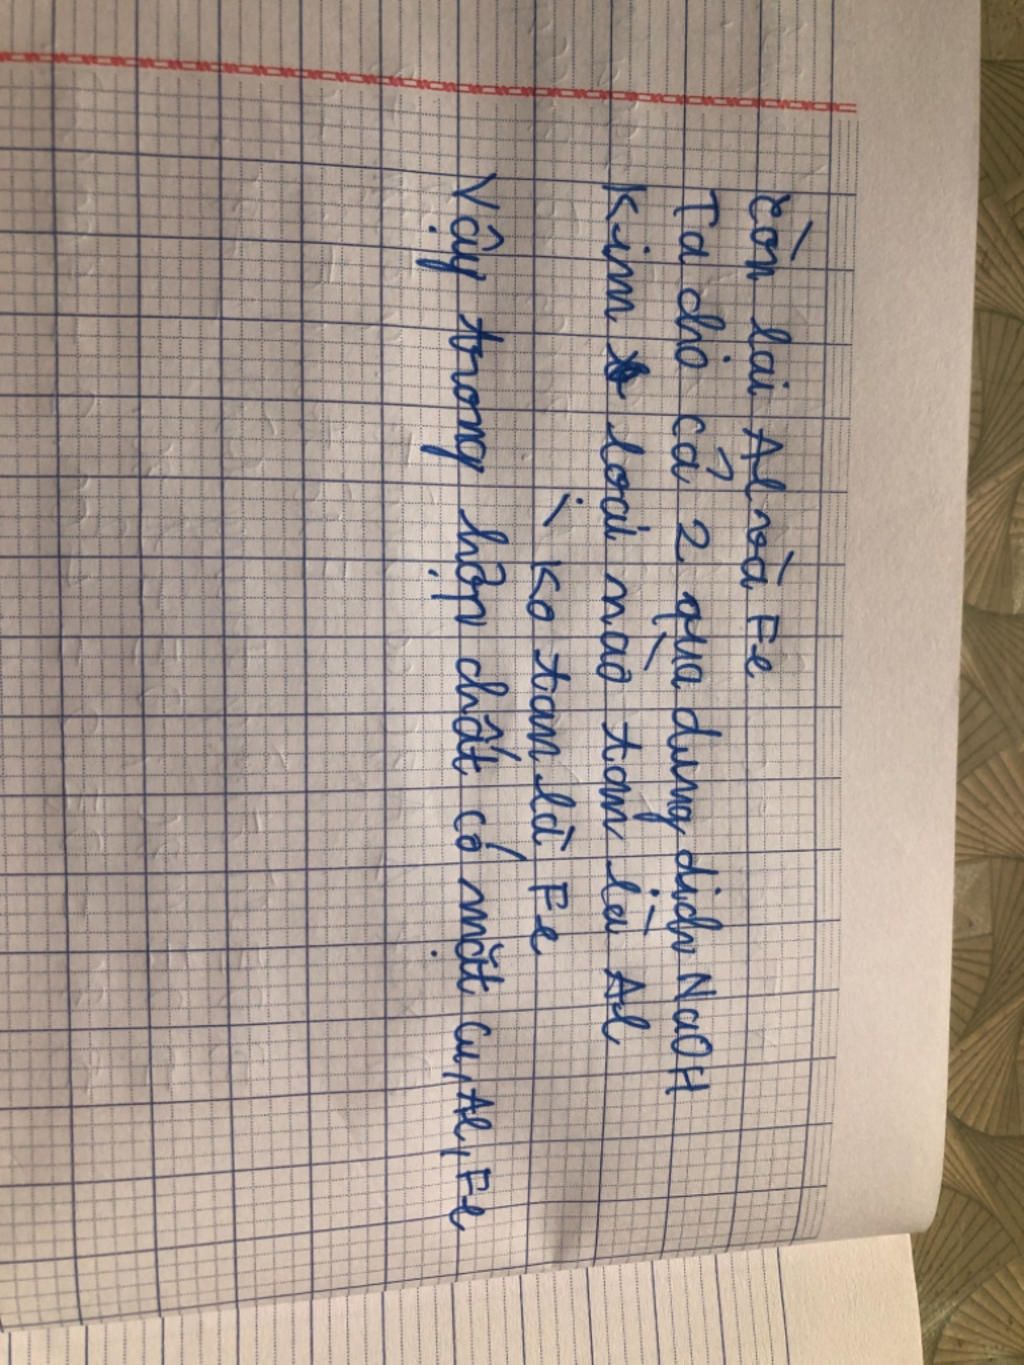 Còn lại Al và Fe
Ta cho cả 2 qua dung dịch NaOH
Kim loại nào tan là Al
ko tan là Fe
Vậy trong hợp chất có mặt Cu, Al, Fe